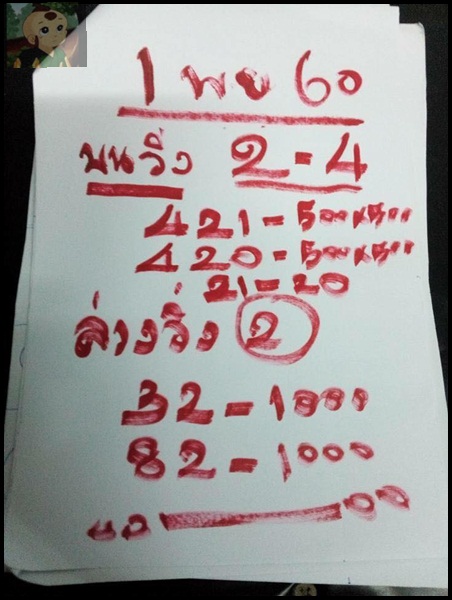 1 พย 60
บนวิ่ง 2-4
421-500x500
420-500x500
21-20
ล่างวิ่ง 2
32-1000
82-1000